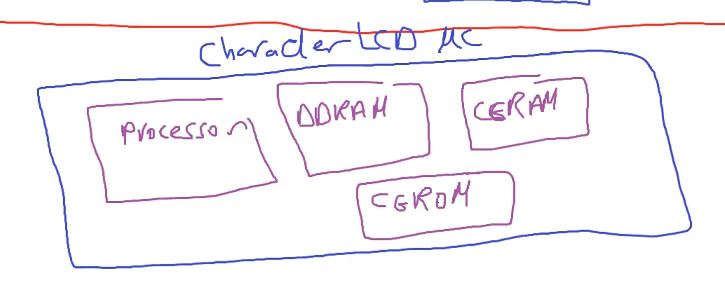 Character LCD MC
Processor
DDRAM
CGRAM
CGROM